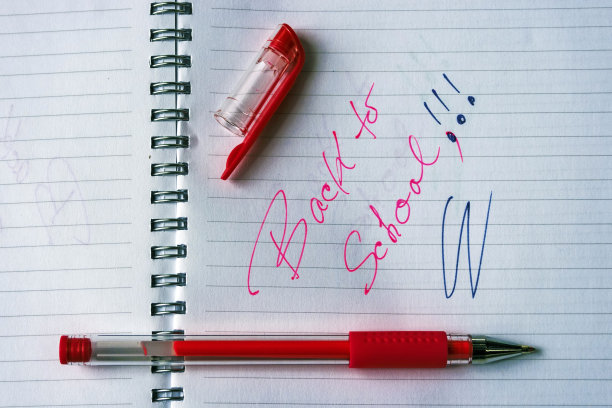 Back to
School,!!!